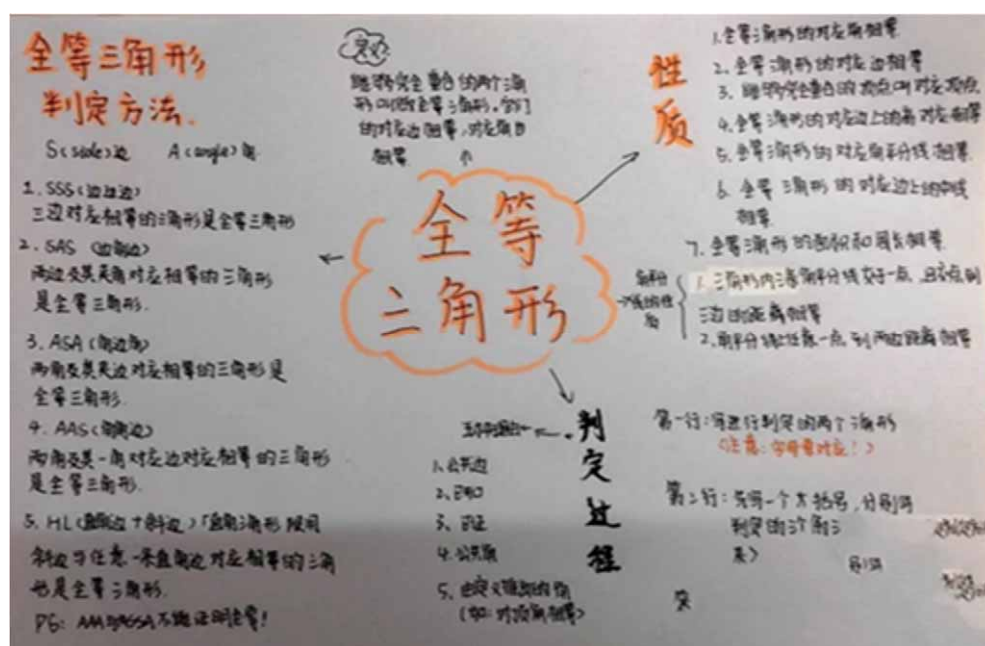 全等三角形
判定方法.
S(side)边 A(angle)角
1. SSS(边边边)
三边对应相等的三角形是全等三角形
2. SAS (边角边)
两边及其夹角对应相等的三角形
是全等三角形.
3. ASA (角边角)
两角及其夹边对应相等的三角形是
全等三角形.
4. AAS(角角边)
两角及其一角对应边对应相等的三角形
是全等三角形.
5. HL(直角边+斜边)「直角三角形使用
斜边与任意一条直角边对应相等的三角
也是全等三角形.
PS: AAA与SSA不能证明全等!
定义
能够完全重合的两个三角
形叫做全等三角形,它们
的对应边相等,对应角也
相等.
全等
三角形
性质
1.全等三角形的对应角相等
2.全等三角形的对应边相等
3.能够完全重合的顶点叫对应顶点
4.全等三角形的对应边上的高对应相等
5.全等三角形的对应角平分线相等.
6.全等三角形的对应边上的中线
相等.
7.全等三角形的面积和周长相等.
角平分
线的性
质
1.三角形内三条角平分线交于一点,且交点到
三边的距离相等
2.角平分线上任意一点到两边距离相等
判定过程
1.公共边
2.已知
3.已证
4.公共角
5.由定义推知的角
(如:对顶角相等)
第一行:写进行判定的两个三角形
(注意:字母要对应!)
第二行:先写一个大括号,分别写